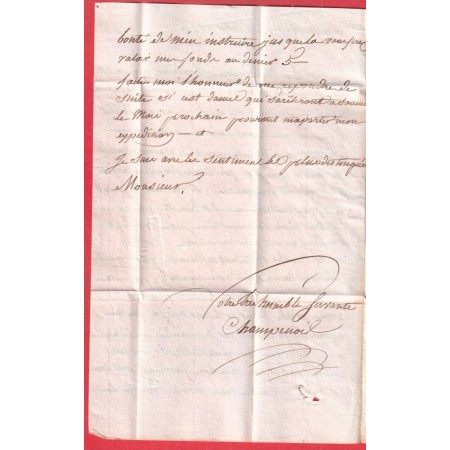 bonté de m'en instruire jusque la vous fre
valoir me fonds au denier 5 -
faite moi l'honneur de me repondre de
suite si cest daniel qui
le Mois prochain pourons maporter mon
expedition - et
je suis avec les sentiment les plus distingués
Monsieur.
Votre tres humble servante
Champenoil